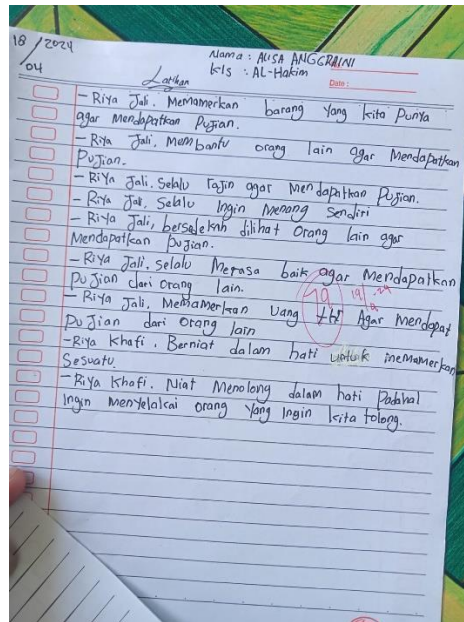 18/2024
04
Nama : ALISA ANGGRAINI
Kls : AL-Hakim
Date :
Latihan
- Riya Jali. Memamerkan barang yang kita Punya
agar Mendapatkan Pujian.
- Riya Jali. Membantu orang lain agar Mendapatkan
Pujian.
- Riya Jali. Selalu rajin agar Mendapatkan Pujian.
- Riya Jali. Selalu Ingin Menang Sendiri
- Riya Jali, bersedekah dilihat Orang lain agar
Mendapatkan Pujian.
- Riya Jali. Selalu Merasa baik agar Mendapatkan
Pujian dari Orang lain.
- Riya Jali, Memamerkan Uang thr Agar Mendapat
Pujian dari Orang lain
- Riya Khafi. Berniat dalam hati untuk memamerkan
Sesuatu.
- Riya Khofi. Niat Menolong dalam hati Padahal
Ingin Menyelakai orang yang Ingin kita tolong.